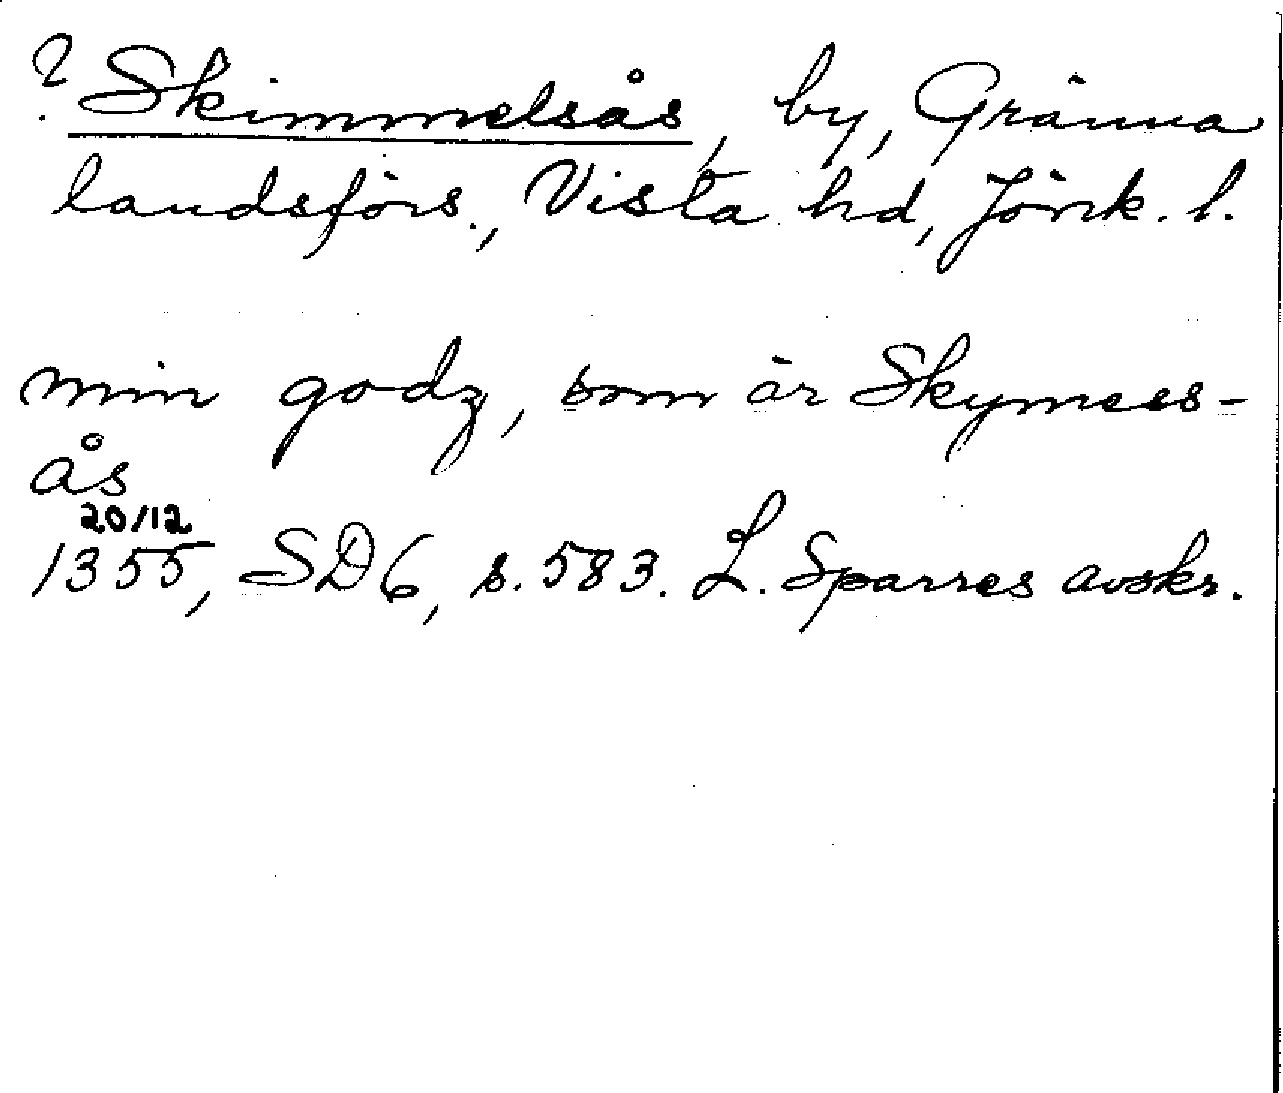 ? Skimmelsås, by, Gränna
landsförs., Vista hd, Jönk. l.
min godz, som är Skymees-
ås
20/12
1355, SD6, s. 583. L. Sparres avskr.